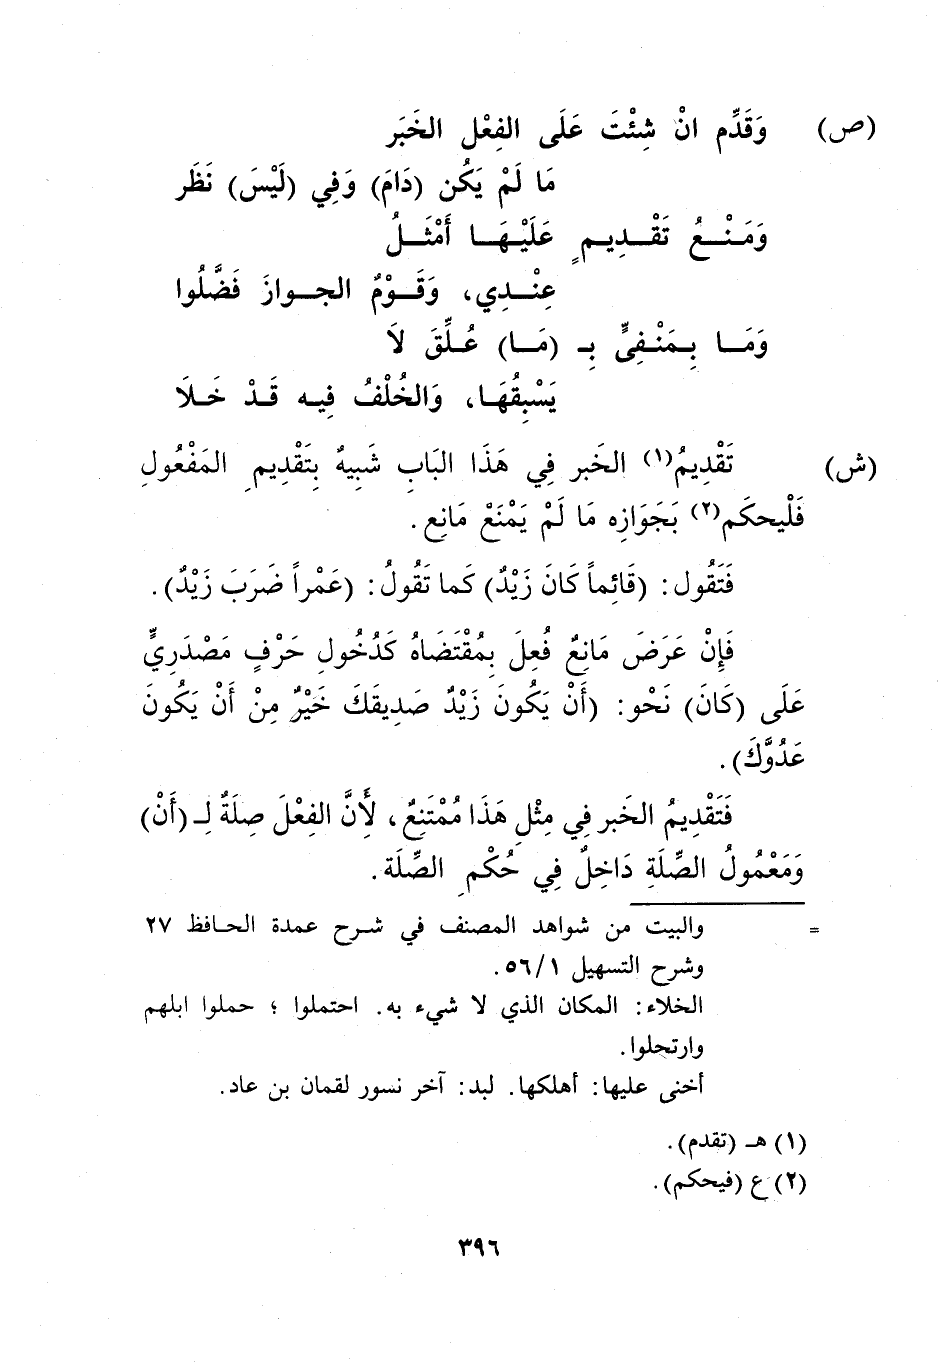 (ص) وَقَدِّم انْ شِئْتَ عَلَى الفِعْل الخَبَر
مَا لَمْ يَكُن (دَامَ) وَفِي (لَيْسَ) نَظَر
وَمَنْعُ تَقْدِيمٍ عَلَيْهَا أَمْثَلُ
عِنْدِي، وَقَوْمٌ الجوازَ فَضَّلُوا
وَمَا بِمَنْفِىٍّ بِـ (مَا) عُلِّقَ لَا
يَسْبِقُهَا، وَالخُلْفُ فِيه قَدْ خَلَا
(ش) تَقْدِيمُ(١) الخَبر فِي هَذَا البَابِ شَبِيهٌ بِتَقْدِيمِ المَفْعُولِ
فَلْيحكَم(٢) بَجَوَازِه مَا لَمْ يَمْنَعْ مَانِع.
فَتَقُول: (قَائِماً كَانَ زَيْدٌ) كَما تَقُولُ: (عَمْراً ضَرَبَ زَيْدٌ).
فَإِنْ عَرَضَ مَانِعٌ فُعِلَ بِمُقْتَضَاهُ كَدُخُولِ حَرْفٍ مَصْدَرِيٍّ
عَلَى (كَانَ) نَحْو: (أَنْ يَكُونَ زَيْدٌ صَدِيقَكَ خَيْرٌ مِنْ أَنْ يَكُونَ
عَدُوَّكَ).
فَتَقْدِيمُ الخَبر فِي مِثْلِ هَذَا مُمْتَنِعٌ، لأَنَّ الفِعْلَ صِلَةٌ لِـ (أَنْ)
وَمَعْمُولُ الصِّلَةِ دَاخِلٌ فِي حُكْمِ الصِّلَة.
= والبيت من شواهد المصنف في شرح عمدة الحافظ ٢٧
وشرح التسهيل ١/٥٦.
الخلاء: المكان الذي لا شيء به. احتملوا ؛ حملوا ابلهم
وارتحلوا.
أخنى عليها: أهلكها. لبد: آخر نسور لقمان بن عاد.
(١) هـ (تقدم).
(٢) ع (فيحكم).
٣٩٦